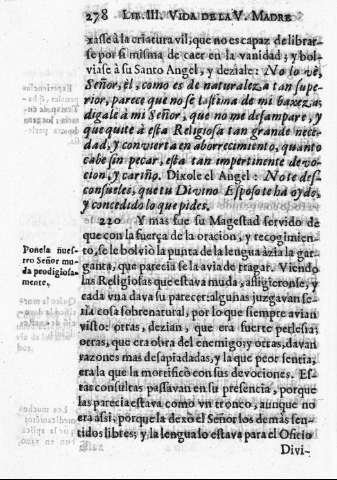 278 LIB. III. VIDA DE LA V. MADRE
xasse à la criatura vil, que no es capaz de librar-
se por si misma de caer en la vanidad; y bol-
viase à su Santo Angel, y deziale: No lo vè,
Señor, èl, como es de naturaleza tan supe-
rior, parece que no se lastima de mi baxeza,
digale à mi Señor, que no me desampare, y
que quite à esta Religiosa tan grande nece-
dad, y convierta en aborrecimiento, quanto
cabe sin pecar, esta tan impertinente devo-
cion, y cariño. Dixole el Angel: No te des-
consueles, que tu Divino Esposo te ha oydo,
y concedido lo que pides.
220 Y mas fue su Magestad servido de
que con la fuerça de la oracion, y recogimien-
Ponela nues-
tro Señor mu-
da prodigiosa-
mente.
to, se le bolviò la punta de la lengua àzia la gar-
ganta, que parecia se la avia de tragar. Viendo
las Religiosas que estava muda, afligieronse, y
cada vna dava su parecer: algunas juzgavan se-
ria cosa sobrenatural, por lo que siempre avian
visto: otras, dezian, que era fuerte perlesia:
otras, que era obra del enemigo: y otras, davan
razones mas desapiadadas, y la que peor sentia,
era la que la mortificò con sus devociones. Es-
tas consultas passavan en su presencia, porque
las parecia estava como vn tronco, aunque no
era assi, porque la dexò el Señor los demàs sen-
tidos libres; y la lengua lo estava para el Oficio
Divi-